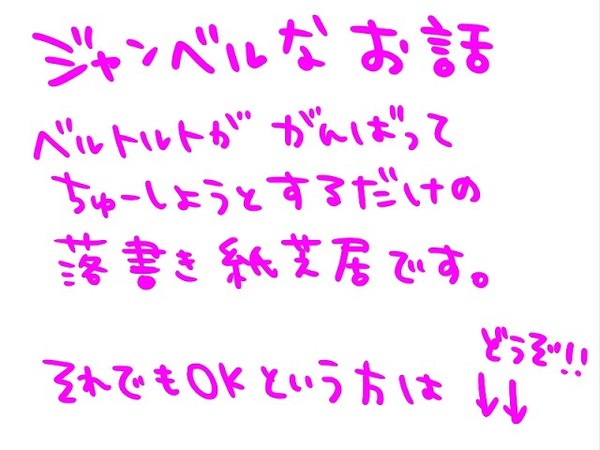 ジャンベルなお話
ベルトルトが がんばって
ちゅーしようとするだけの
落書き紙芝居です。
それでもOKという方は
どうぞ!!
↓↓